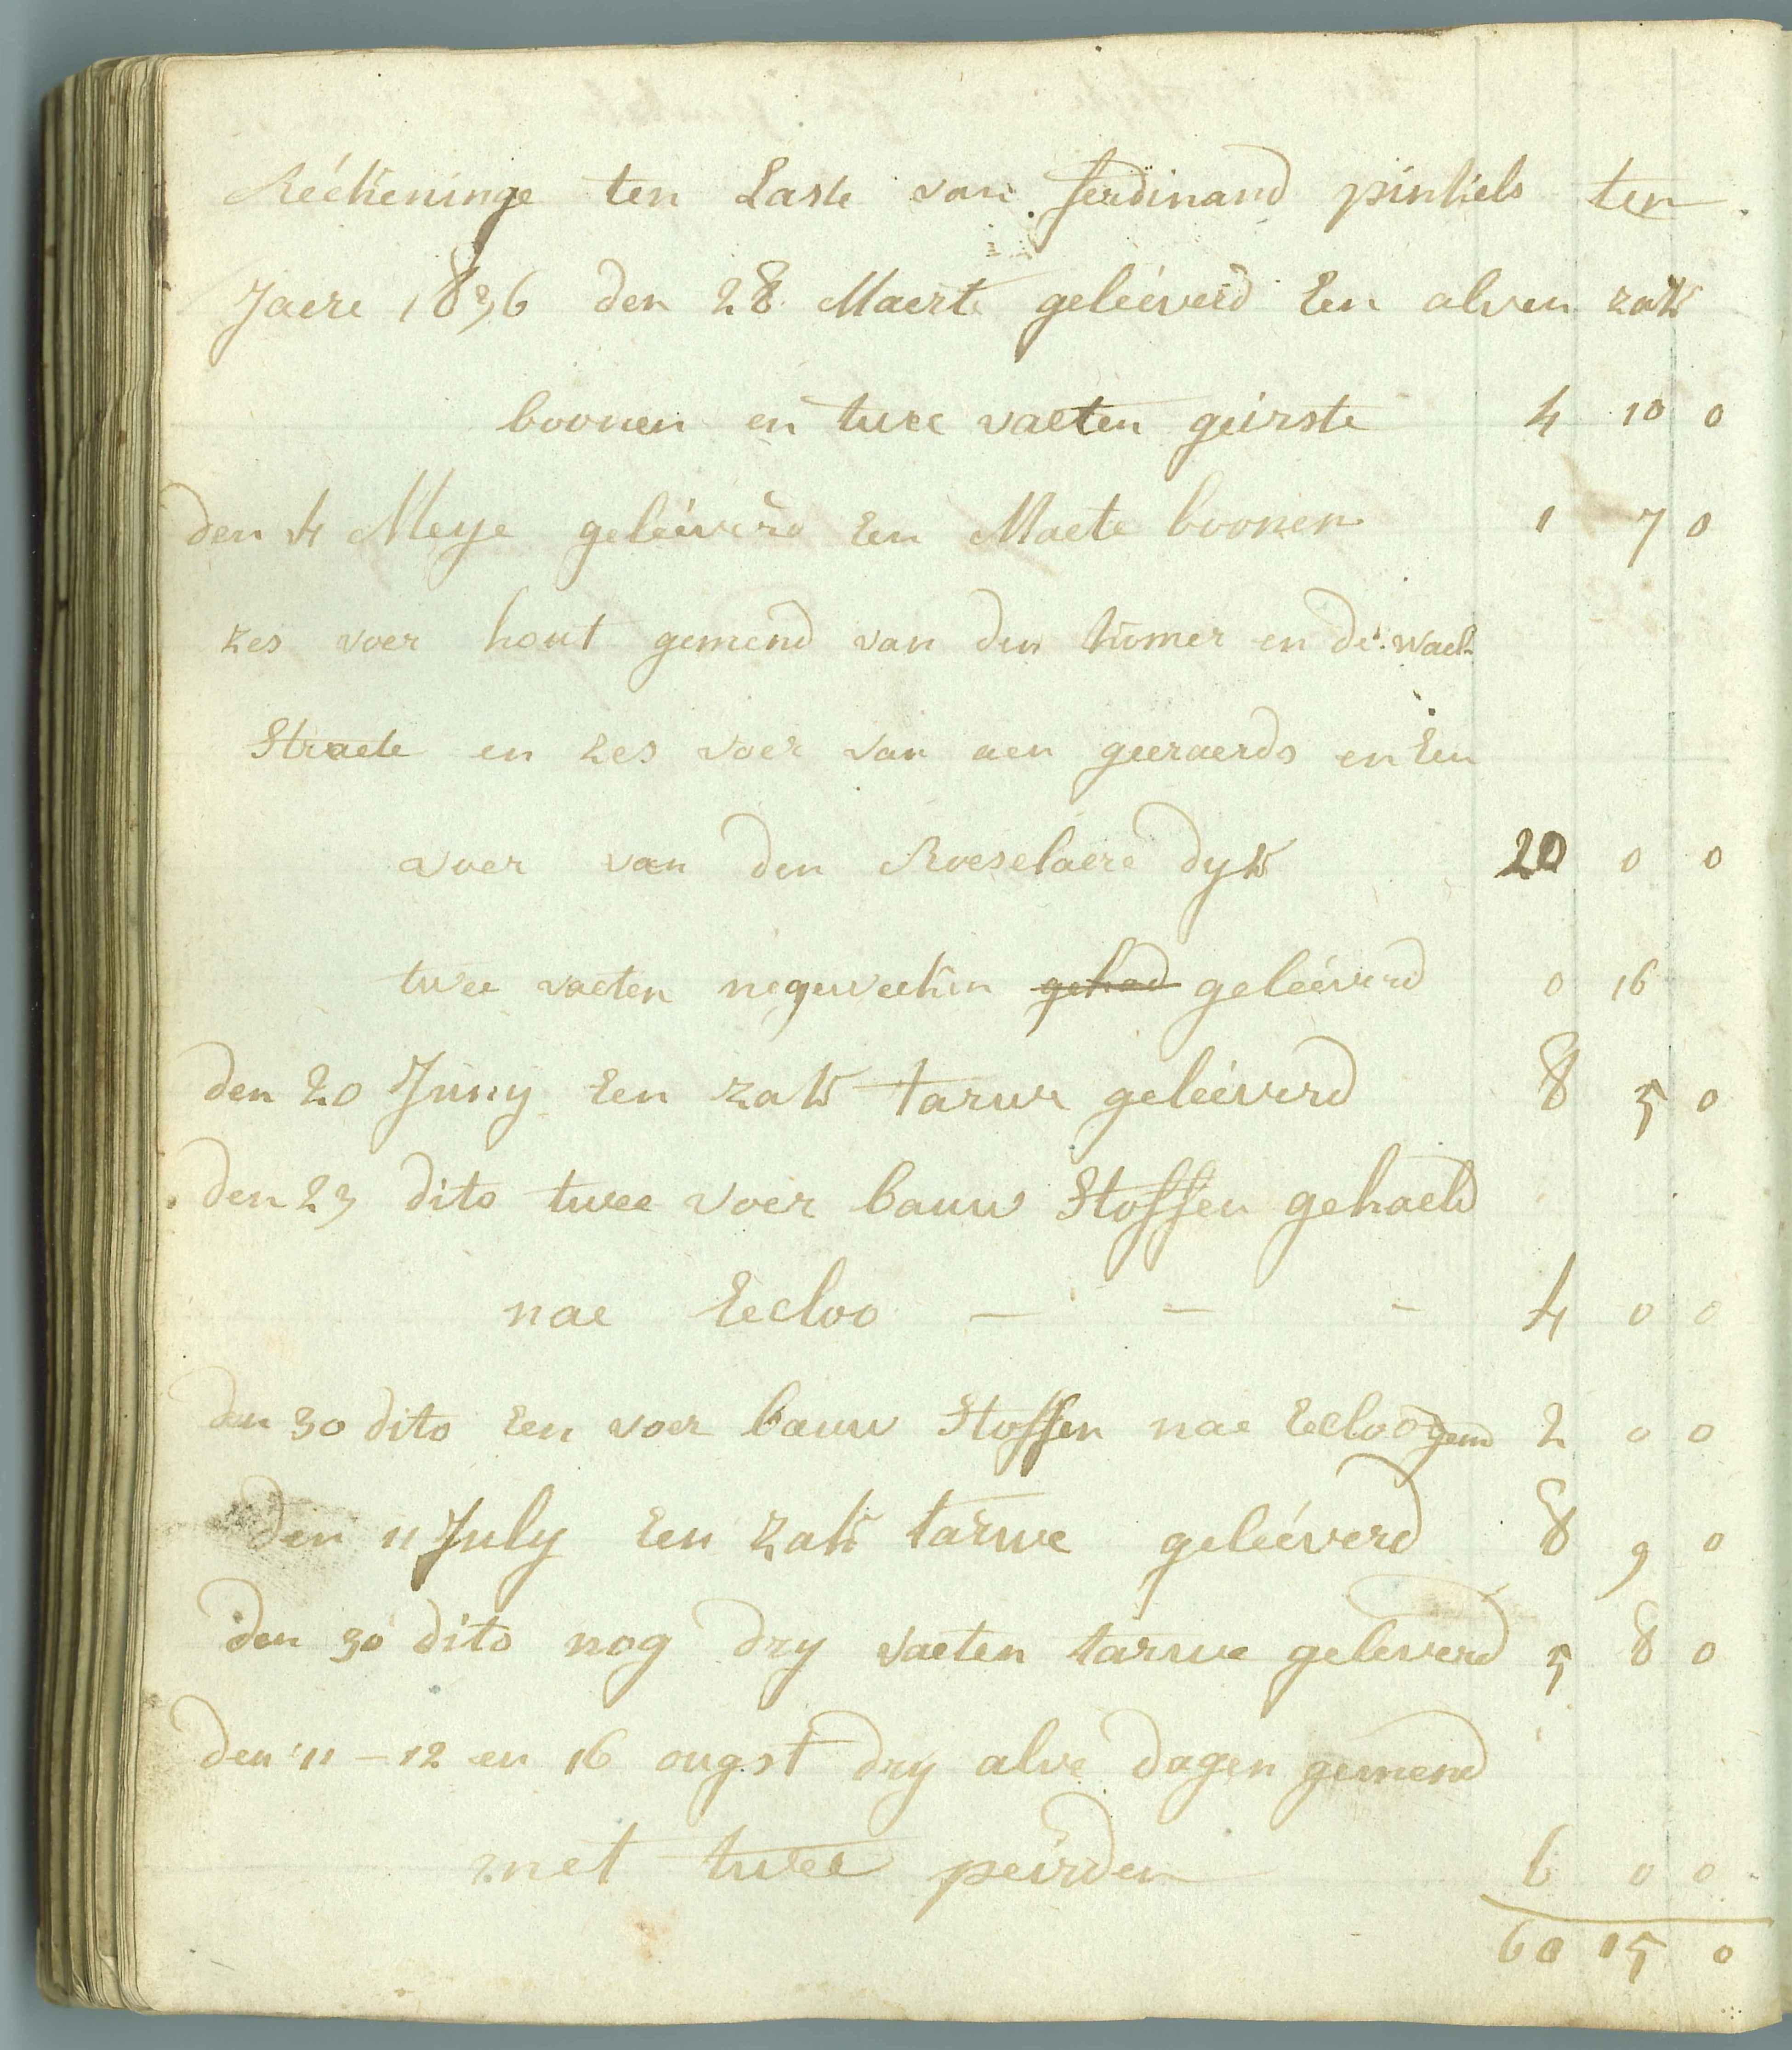 Réckeninge ten Laste van ferdinand pinkels ten
Jaere 1836 den 28 Maerte geleéverd Een alven zak
boonen en twee vaeten geirste 4 10 0
den 4 Meye geleéverd Een Maete boonen 1 7 0
zes voer hout gemend van den homer en de wael
Straete en zes voer van aen geeraerds en Een
voer van den Roeselaere dyk 20 0 0
twee vaeten negeweeken gehad geleéverd 0 16
den 20 Juny Een zak tarwe geleéverd 8 5 0
den 23 dito twee voer bauw Stoffen gehaeld
nae Eecloo — — - 4 0 0
den 30 dito Een voer bauw Stoffen nae Eecloo gem 2 0 0
den 11 July Een zak tarwe geleéverd 8 9 0
den 30 dito nog dry vaeten tarwe geleverd 5 8 0
den 11 - 12 en 16 ougst dry alve dagen gemend
met twee peirden 6 0 0
60 15 0